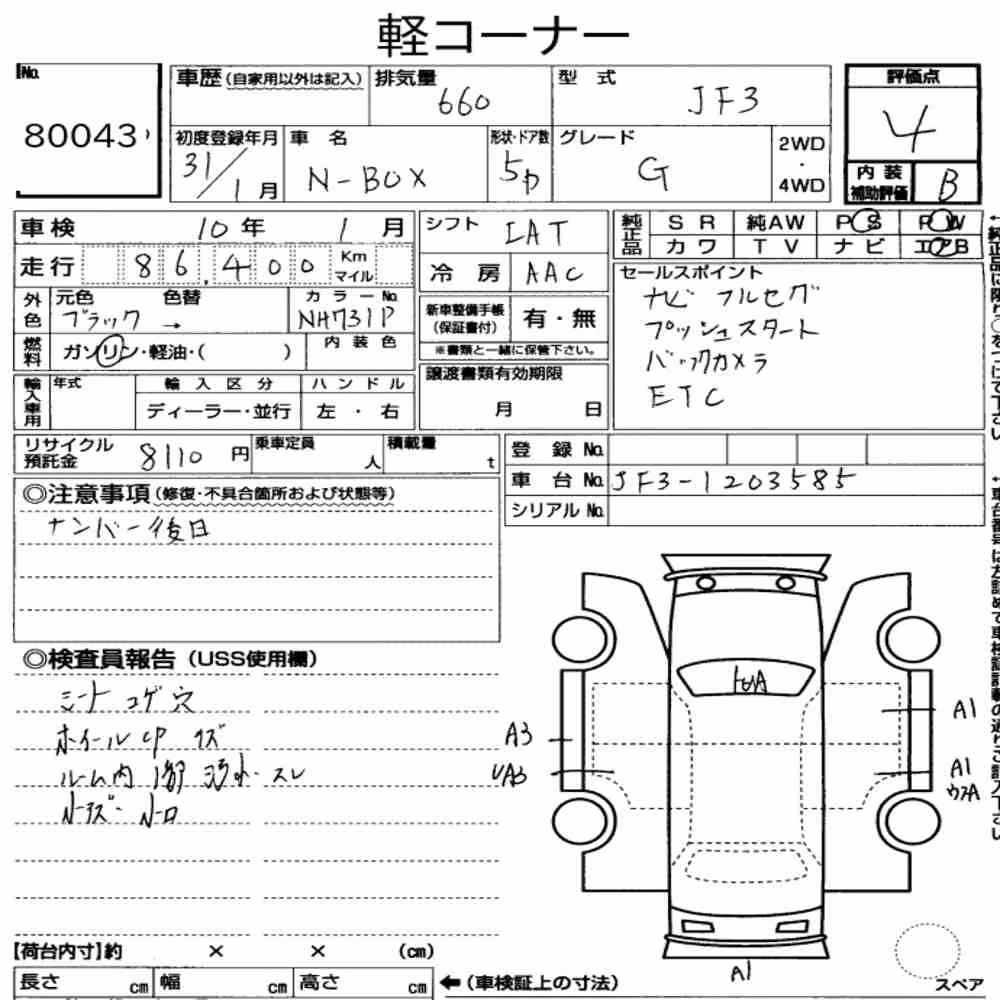 軽コーナー
No.
80043
車歴(自家用以外は記入)
排気量
660
型 式
JF3
評価点
4
初度登録年月
31/1月
車 名
N-BOX
形状・ドア数
5D
グレード
G
2WD
・
4WD
内 装
補助評価
B
車検 10年 1月
走行 86,400 Km マイル
外色
元色 色替
ブラック →
カラーNo.
NH731P
燃料
ガソリン・軽油・( )
内 装 色
輸入車用
年式
輸 入 区 分
ディーラー・並行
ハ ン ド ル
左 ・ 右
シフト
IAT
冷 房
AAC
新車整備手帳
(保証書付)
有・無
※書類と一緒に保管下さい。
譲渡書類有効期限
月 日
純正品
SR 純AW PS PW
カワ TV ナビ エアB
セールスポイント
ナビ フルセグ
プッシュスタート
バックカメラ
ETC
リサイクル
預託金
8110 円
乗車定員
人
積載量
t
登 録 No.
車 台 No. JF3-1203585
シリアル No.
◎注意事項(修復・不具合箇所および状態等)
ナンバー後日
◎検査員報告(USS使用欄)
シート コゲ穴
ホイールCP キズ
ルーム内
スレ
A3
A1
A1
A1
【荷台内寸】約 × × (cm)
長さ cm 幅 cm 高さ cm
←(車検証上の寸法)
スペア